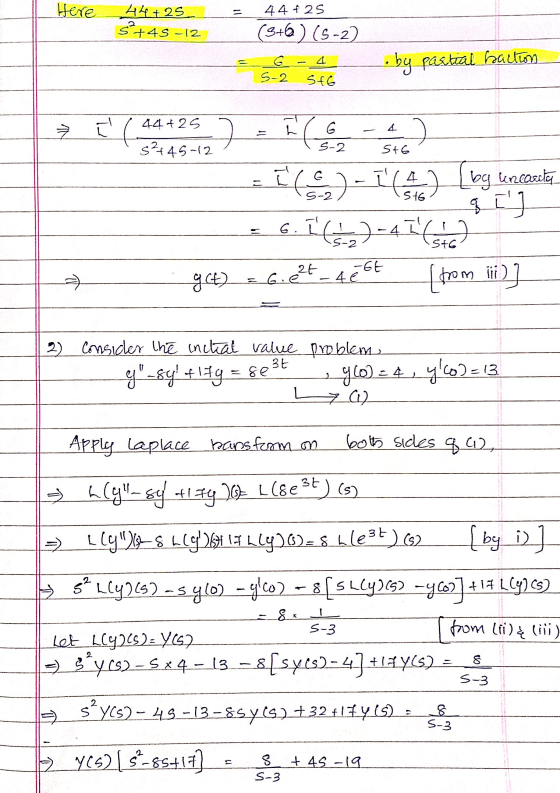 Here 44+2S / S²+4S-12 = 44+2S / (S+6)(S-2)
= 6/S-2 - 4/S+6 . by partial fraction
⇒ L⁻¹(44+2S / S²+4S-12) = L⁻¹(6/S-2 - 4/S+6)
= L⁻¹(6/S-2) - L⁻¹(4/S+6) [by linearity of L⁻¹]
= 6. L⁻¹(1/S-2) - 4 L⁻¹(1/S+6)
⇒ g(t) = 6.e^2t - 4e^-6t [from iii)]
2) Consider the initial value problem,
y'' - 8y' + 17y = 8e^3t , y(0) = 4 , y'(0) = 13
↳ (1)
Apply Laplace transform on both sides of (1),
⇒ L(y'' - 8y' + 17y)(s) = L(8e^3t)(s)
⇒ L(y'')(s) - 8 L(y')(s) + 17 L(y)(s) = 8 L(e^3t)(s) [by i)]
⇒ S² L(y)(s) - s y(0) - y'(0) - 8[S L(y)(s) - y(0)] + 17 L(y)(s)
= 8 × 1/S-3
Let L(y)(s) = Y(s) [from (ii) & (iii)
⇒ S² Y(s) - S×4 - 13 - 8[SY(s) - 4] + 17 Y(s) = 8/S-3
⇒ S² Y(s) - 4S - 13 - 8S Y(s) + 32 + 17 Y(s) = 8/S-3
⇒ Y(s)[S² - 8S + 17] = 8/S-3 + 4S - 19